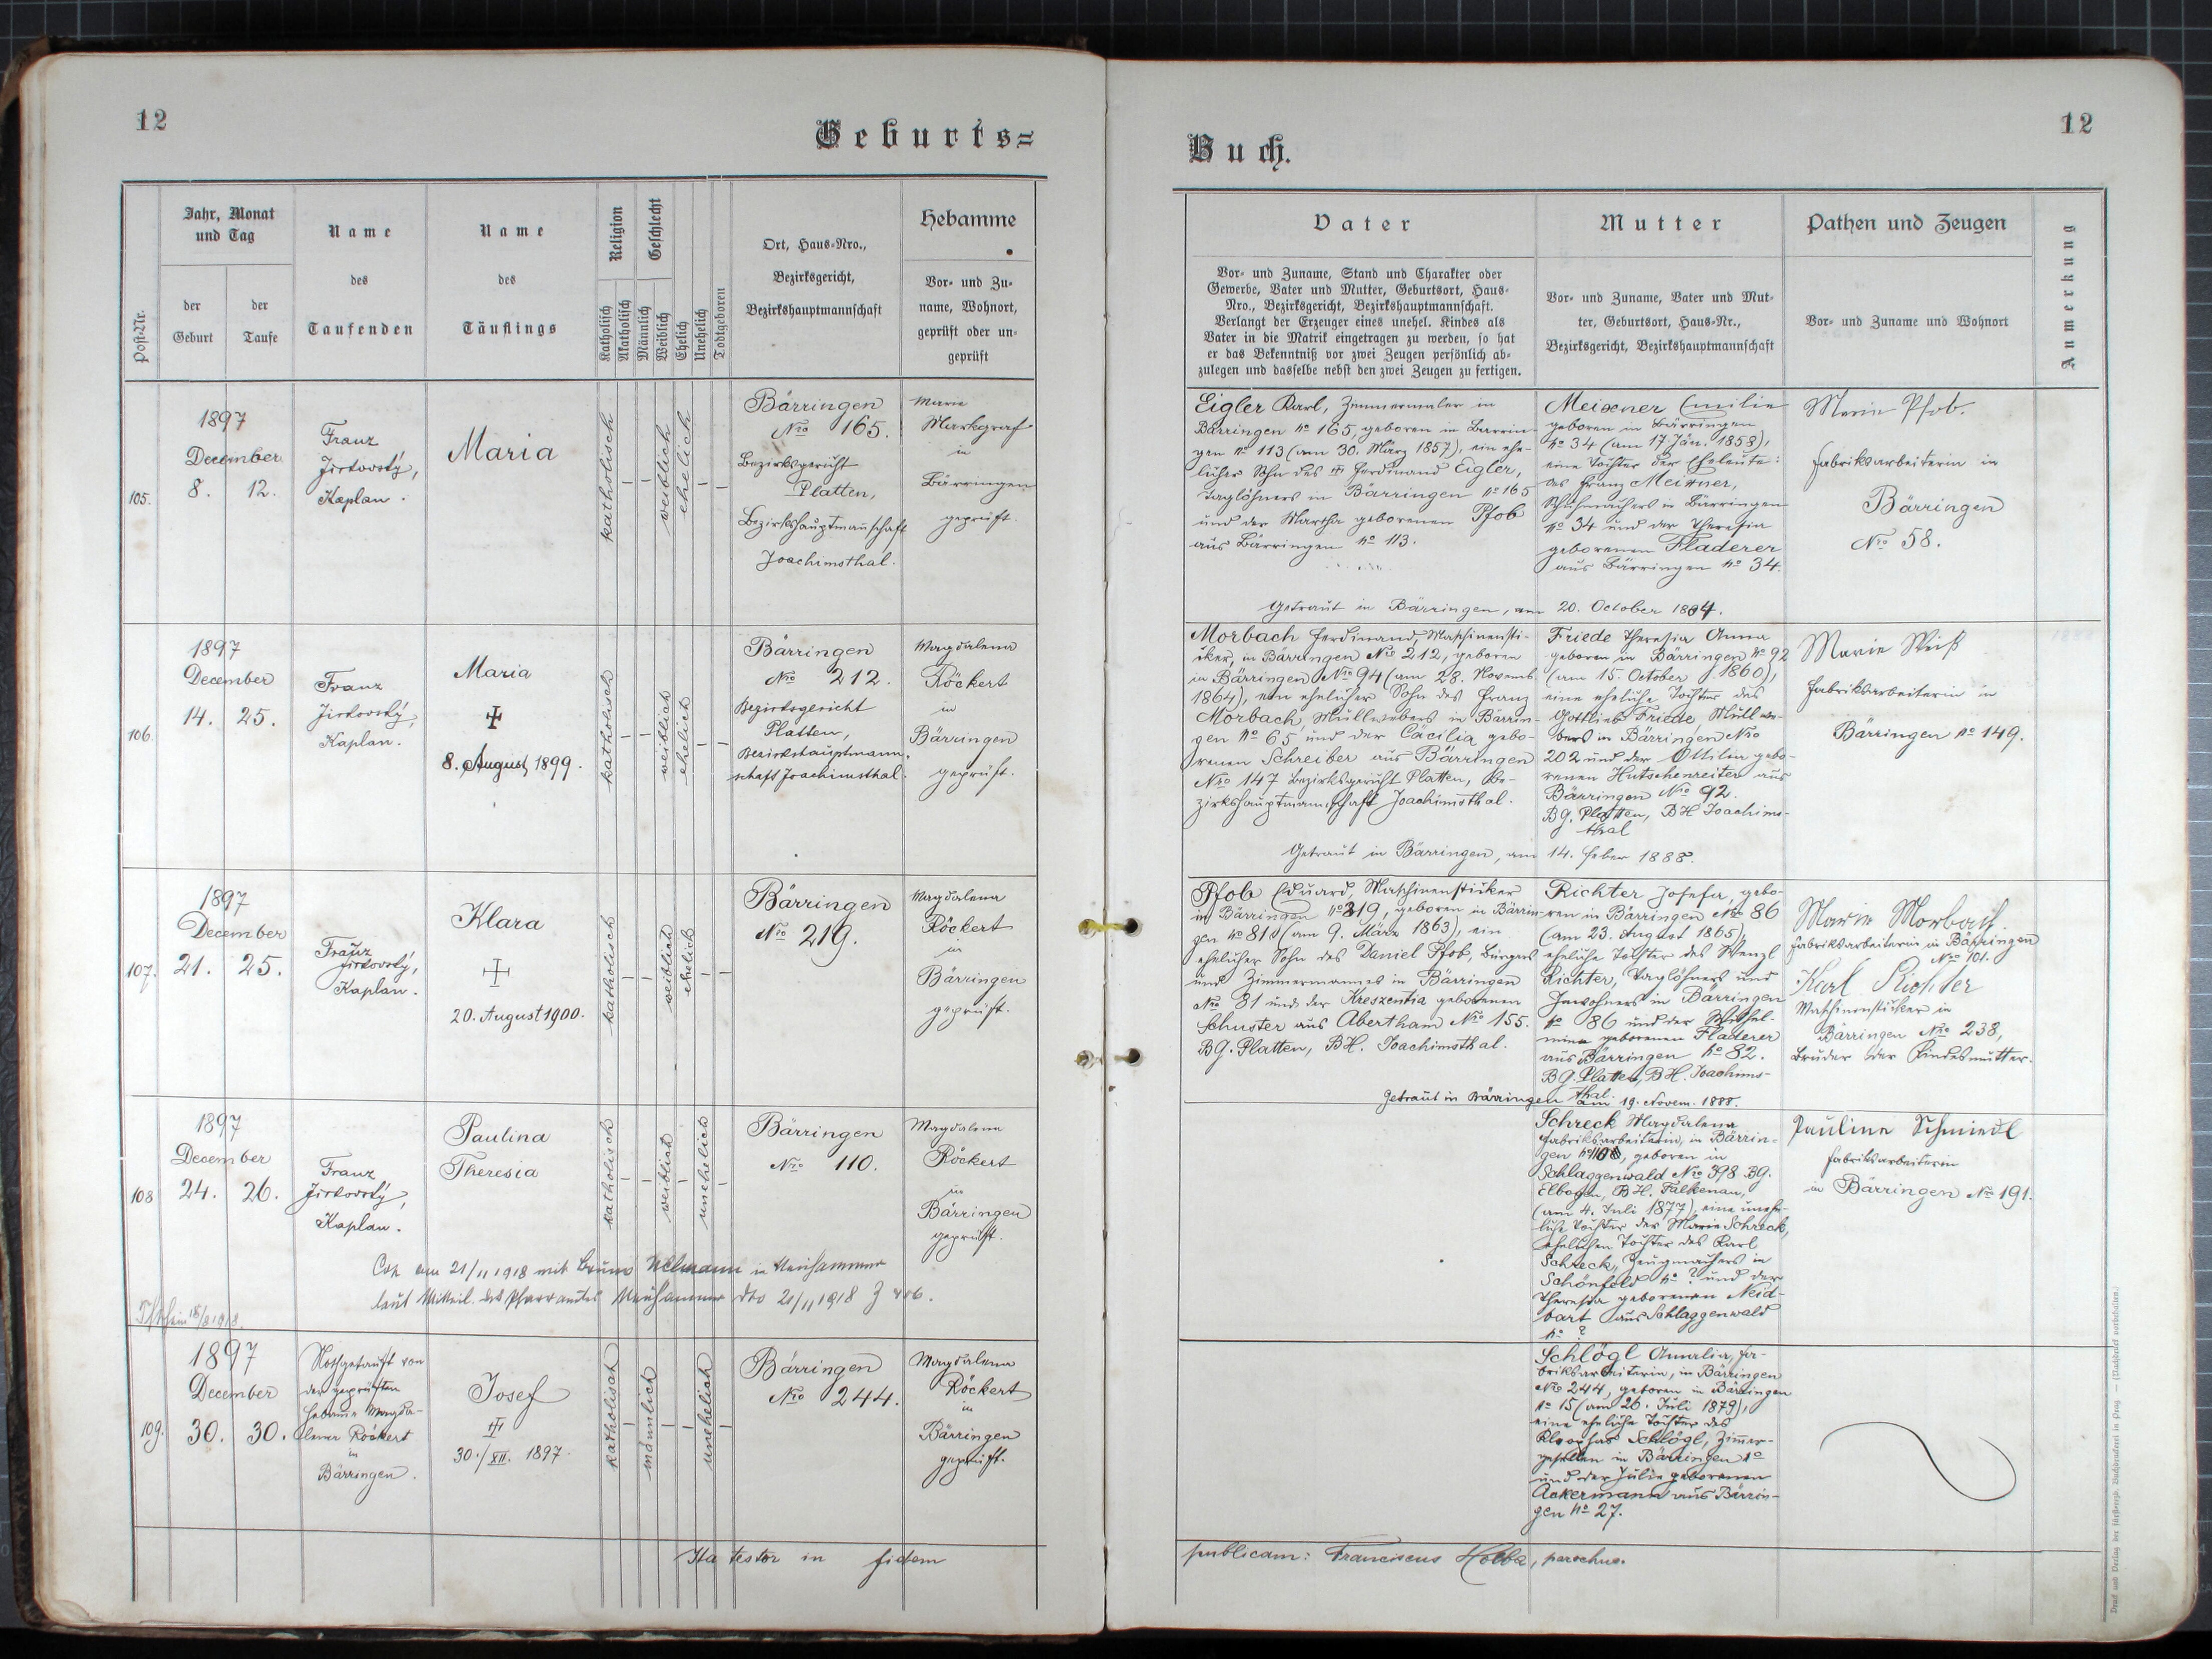 12
Geburts=
Post-Nr.
Jahr, Monat
und Tag
der
Geburt
der
Taufe
Name
des
Taufenden
Name
des
Täuflings
Religion
Katholisch
Akatholisch
Geschlecht
Männlich
Weiblich
Ehelich
Unehelich
Todtgeboren
Ort, Haus-Nro.,
Bezirksgericht,
Bezirkshauptmannschaft
Hebamme
Vor- und Zu-
name, Wohnort,
geprüft oder un-
geprüft
105.
1897
December
8. 12.
Franz
Jirkovský,
Kaplan.
Maria
katholisch
weiblich
ehelich
Bärringen
Nro 165.
Bezirksgericht
Platten,
Bezirkshauptmannschaft
Joachimsthal.
Marie
Markgraf
in
Bärringen
geprüft.
106.
1897
December
14. 25.
Franz
Jirkovský,
Kaplan.
Maria
8. August 1899.
katholisch
weiblich
ehelich
Bärringen
Nro 212.
Bezirksgericht
Platten,
Bezirkshauptmann-
schaft Joachimsthal.
Magdalena
Röckert
in
Bärringen
geprüft.
107.
1897
December
21. 25.
Franz
Jirkovský,
Kaplan.
Klara
20. August 1900.
katholisch
weiblich
ehelich
Bärringen
Nro 219.
Magdalena
Röckert
in
Bärringen
geprüft.
108
1897
December
24. 26.
Franz
Jirkovský,
Kaplan.
Paulina
Theresia
katholisch
weiblich
unehelich
Bärringen
Nro 110.
Magdalena
Röckert
in
Bärringen
geprüft.
Cop. am 21/11 1918 mit Bruno Ullmann in Neuhammer
laut Mitteil. des Pfarramtes Neuhammer dto 21/11 1918
109.
1897
December
30. 30.
Nothgetauft von
der geprüften
Hebamme Magda-
lena Röckert
in
Bärringen.
Josef
30./XII. 1897.
katholisch
männlich
unehelich
Bärringen
Nro 244.
Magdalena
Röckert
in
Bärringen
geprüft.
Ita testor in fidem
12
Buch.
Vater
Vor- und Zuname, Stand und Charakter oder
Gewerbe, Vater und Mutter, Geburtsort, Haus-
Nro., Bezirksgericht, Bezirkshauptmannschaft.
Verlangt der Erzeuger eines unehel. Kindes als
Vater in die Matrik eingetragen zu werden, so hat
er das Bekenntniß vor zwei Zeugen persönlich ab-
zulegen und dasselbe nebst den zwei Zeugen zu fertigen.
Mutter
Vor- und Zuname, Vater und Mut-
ter, Geburtsort, Haus-Nr.,
Bezirksgericht, Bezirkshauptmannschaft
Pathen und Zeugen
Vor- und Zuname und Wohnort
Anmerkung
Eigler Karl, Zimmermaler in
Bärringen No 165, geboren in Bärrin-
gen No 113 (am 30. März 1857), ein ehe-
licher Sohn des Ferdinand Eigler,
Taglöhners in Bärringen No 165
und der Martha geborenen Pfob
aus Bärringen No 113.
Meixner Emilie
geboren in Bärringen
No 34 (am 17. Jän. 1858),
eine Tochter der Eheleute:
des Franz Meixner,
Schuhmachers in Bärringen
No 34 und der Theresia
geborenen Fladerer
aus Bärringen No 34.
Marie Pfob.
Fabriksarbeiterin in
Bärringen
Nro 58.
Getraut in Bärringen, am 20. October 1884.
Morbach Ferdinand, Maschinensti-
cker, in Bärringen Nro 212, geboren
in Bärringen Nro 94 (am 28. Novemb.
1864), ein ehelicher Sohn des Franz
Morbach, Müllwebers in Bärrin-
gen No 65 und der Cäcilia gebo-
renen Schreiber aus Bärringen
Nro 147 Bezirksgericht Platten, Be-
zirkshauptmannschaft Joachimsthal.
Friede Theresia Anna
geboren in Bärringen No 92
(am 15. October 1860),
eine eheliche Tochter des
Gottlieb Friede, Müllwe-
bers in Bärringen Nro
202 und der Ottilia gebo-
renen Hutschenreiter aus
Bärringen Nro 92.
BG. Platten, BH Joachims-
thal
Marie Weiß
Fabriksarbeiterin in
Bärringen No 149.
Getraut in Bärringen, am 14. Feber 1888.
Pfob Eduard, Maschinensticker
in Bärringen No 219, geboren in Bärrin-
gen No 81 (am 9. März 1863), ein
ehelicher Sohn des Daniel Pfob, Bürgers
und Zimmermannes in Bärringen
Nro 81 und der Kreszentia geborenen
Schuster aus Abertham Nro 155.
BG. Platten, BH. Joachimsthal.
Richter Josefa, gebo-
ren in Bärringen Nro 86
(am 23. August 1865),
eheliche Tochter des Wenzl
Richter, Taglöhners und
Inwohners in Bärringen
No 86 und der Wilhel-
mine geborenen Fladerer
aus Bärringen No 82.
BG. Platten, BH. Joachims-
thal.
Marie Morbach.
Fabriksarbeiterin in Bärringen
Nro 101.
Karl Richter
Maschinensticker in
Bärringen Nro 238,
Bruder der Kindesmutter.
Getraut in Bärringen am 19. Novem. 1888.
Schreck Magdalena
Fabriksarbeiterin, in Bärrin-
gen No 110, geboren in
Schlaggenwald Nro 398 BG.
Elbogen, BH. Falkenau,
(am 4. Juli 1877), eine unehe-
liche Tochter der Marie Schreck,
ehelichen Tochter des Karl
Schreck, Zeugmachers in
Schönfeld No ? und der
Theresia geborenen Neid-
hart aus Schlaggenwald
No ?
Pauline Schmiedl
Fabriksarbeiterin
in Bärringen Nro 191.
Schlögl Amalia, Fa-
briksarbeiterin, in Bärringen
Nro 244, geboren in Bärringen
No 15 (am 26. Juli 1879),
eine eheliche Tochter des
Kleophas Schlögl, Zimmer-
gesellen in Bärringen No
und der Julie geborenen
Ackermann aus Bärrin-
gen No 27.
publicam: Franciscus Holba, parochus.
Druck und Verlag der fürsterzb. Buchdruckerei in Prag. — (Nachdruck vorbehalten.)